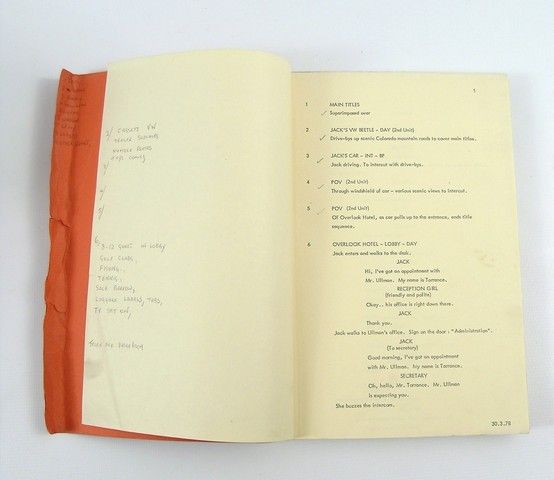 3/ CASSETS VW
NUMBER PLATES
4/
5/
6. 3-12 SUIT IN LOBBY
GOLF CLUBS,
FISHING,
TENNIS,
LUGGAGE LABELS, TAGS,
TV SET ON,
1
1 MAIN TITLES
Superimposed over
2 JACK'S VW BEETLE - DAY (2nd Unit)
Drive-bys up scenic Colorado mountain roads to cover main titles.
3 JACK'S CAR - INT - BP
Jack driving. To intercut with drive-bys.
4 POV (2nd Unit)
Through windshield of car - various scenic views to intercut.
5 POV (2nd Unit)
Of Overlook Hotel, as car pulls up to the entrance, ends title
sequence.
6 OVERLOOK HOTEL - LOBBY - DAY
Jack enters and walks to the desk.
JACK
Hi, I've got an appointment with
Mr. Ullman. My name is Torrance.
RECEPTION GIRL
(friendly and polite)
Okay.. his office is right down there.
JACK
Thank you.
Jack walks to Ullman's office. Sign on the door : "Administration".
JACK
(To secretary)
Good morning, I've got an appointment
with Mr. Ullman. My name is Torrance.
SECRETARY
Oh, hello, Mr. Torrance. Mr. Ullman
is expecting you.
She buzzes the intercom.
30.3.78